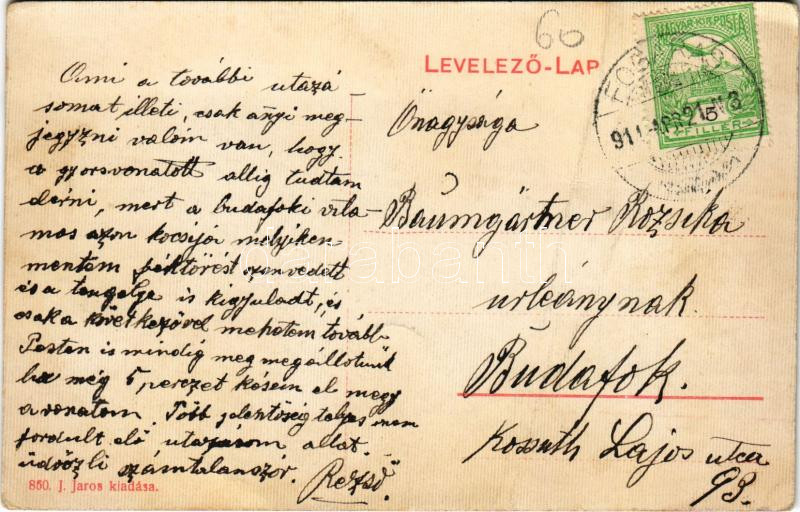 60
LEVELEZŐ-LAP
MAGYAR·KIR·POSTA
911 APR 21
5
FILLER
Ami a további utazá-
somat illeti, csak anyi meg-
jegyzni valóm van, hogy
a gyorsvonatott allig tudtam
elérni, mert a budafoki villa-
mos azon kocsija melyiken
mentem féktörést szenvedett
és a tengelye is kigyuladt, és
csak a következővel mehetem tovább
Pesten is mindig meg megállotunk
ha még 5 perczet késem el megy
a vonatom. Több jelentőség teljes nem
fordult elő utazásom allat.
üdvözli számtalanszor.
Rezső
Őnagysága
Baumgärtner Rozsika
urleánynak.
Budafok.
Kossuth Lajos utca
93.
850. J. Jaros kiadása.